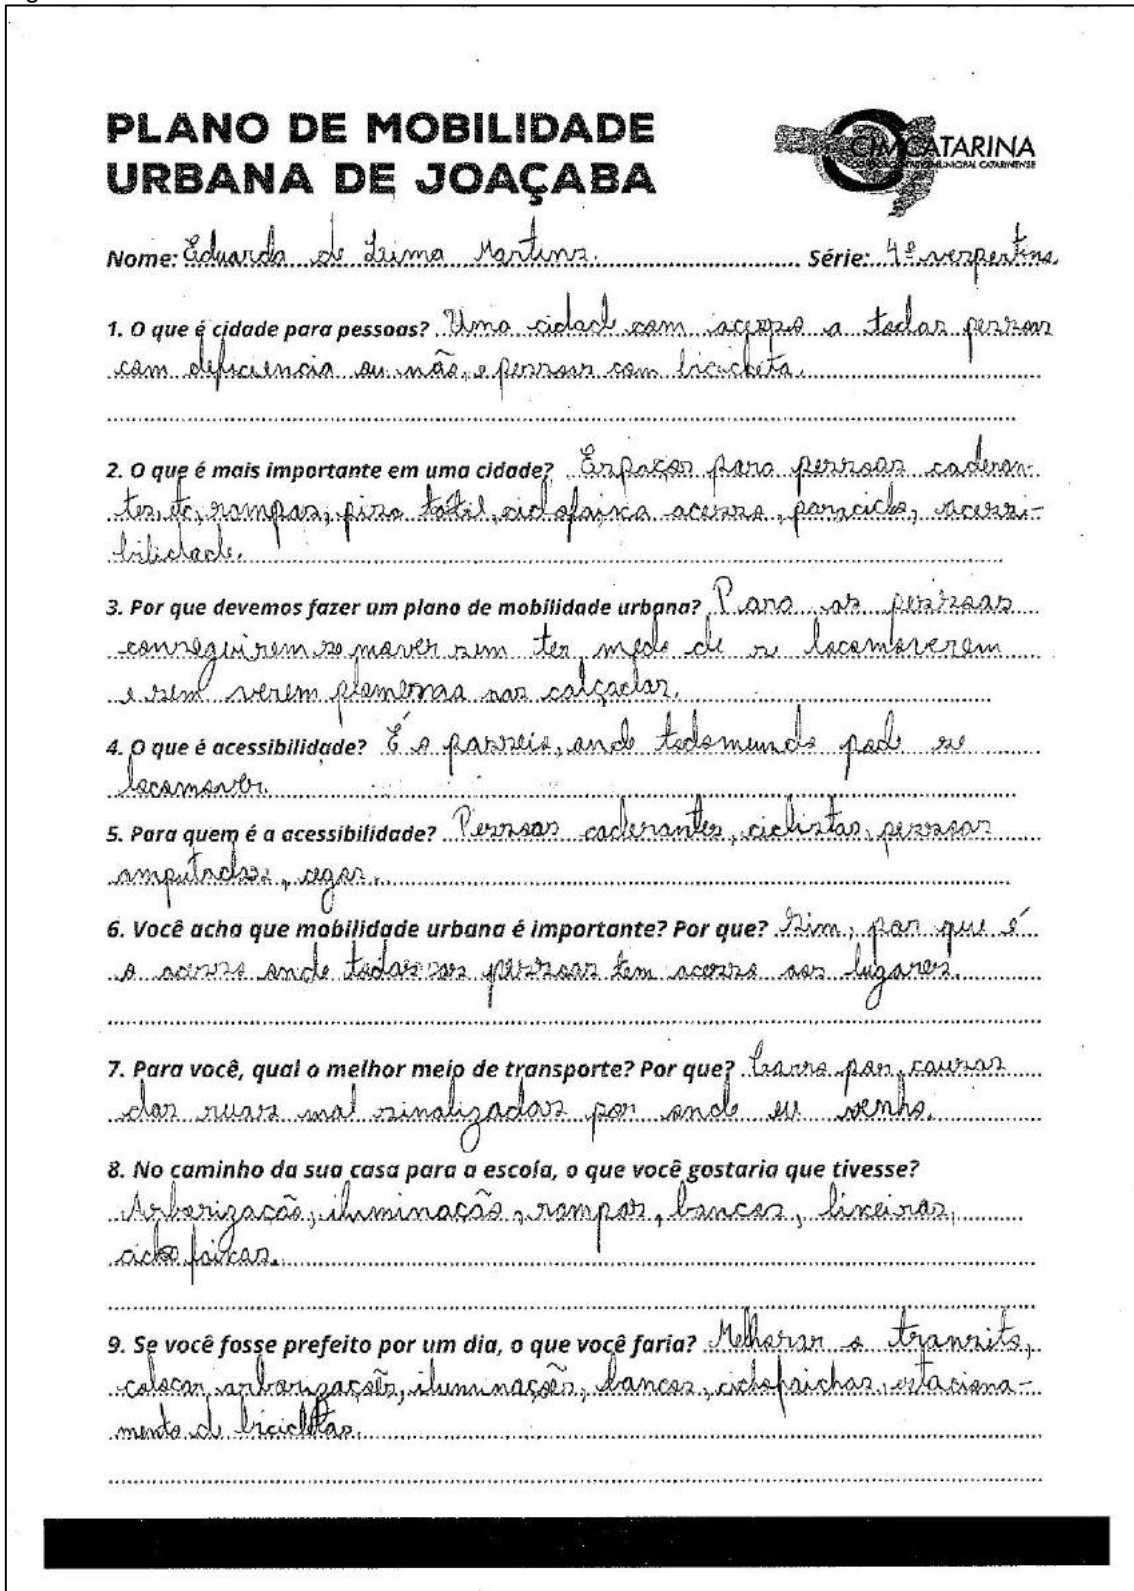 PLANO DE MOBILIDADE
URBANA DE JOAÇABA
CIMCATARINA
Nome: Eduarda de Leima Martins. Série: 4º verpertino.
1. O que é cidade para pessoas? Uma cidade com acesso a todas pessoas
com deficiencia ou não, e pessoas com bicicleta.
2. O que é mais importante em uma cidade? Espaços para pessoas caderan-
tes, etc, rampas, piso tátil, ciclofaixa acesso, paraciclo, acessi-
bilidade.
3. Por que devemos fazer um plano de mobilidade urbana? Para as pessoas
conseguirem se mover sem ter medo de se locomoverem
e sem verem nas calçadas.
4. O que é acessibilidade? É o passeio, onde todomundo pode se
locomover.
5. Para quem é a acessibilidade? Pessoas caderantes, ciclistas, pessoas
amputadas, cegas.
6. Você acha que mobilidade urbana é importante? Por que? Sim, por que é
o acesso onde todas as pessoas tem acesso aos lugares.
7. Para você, qual o melhor meio de transporte? Por que? Carro por causas
das ruas mal sinalizadas por onde eu venho.
8. No caminho da sua casa para a escola, o que você gostaria que tivesse?
Arborização, iluminação, rampas, bancos, lixeiras,
ciclo faixas.
9. Se você fosse prefeito por um dia, o que você faria? Melhorar o transito,
colocar arborizações, iluminações, bancos, ciclofaichas, estaciona-
mento de bicicletas.